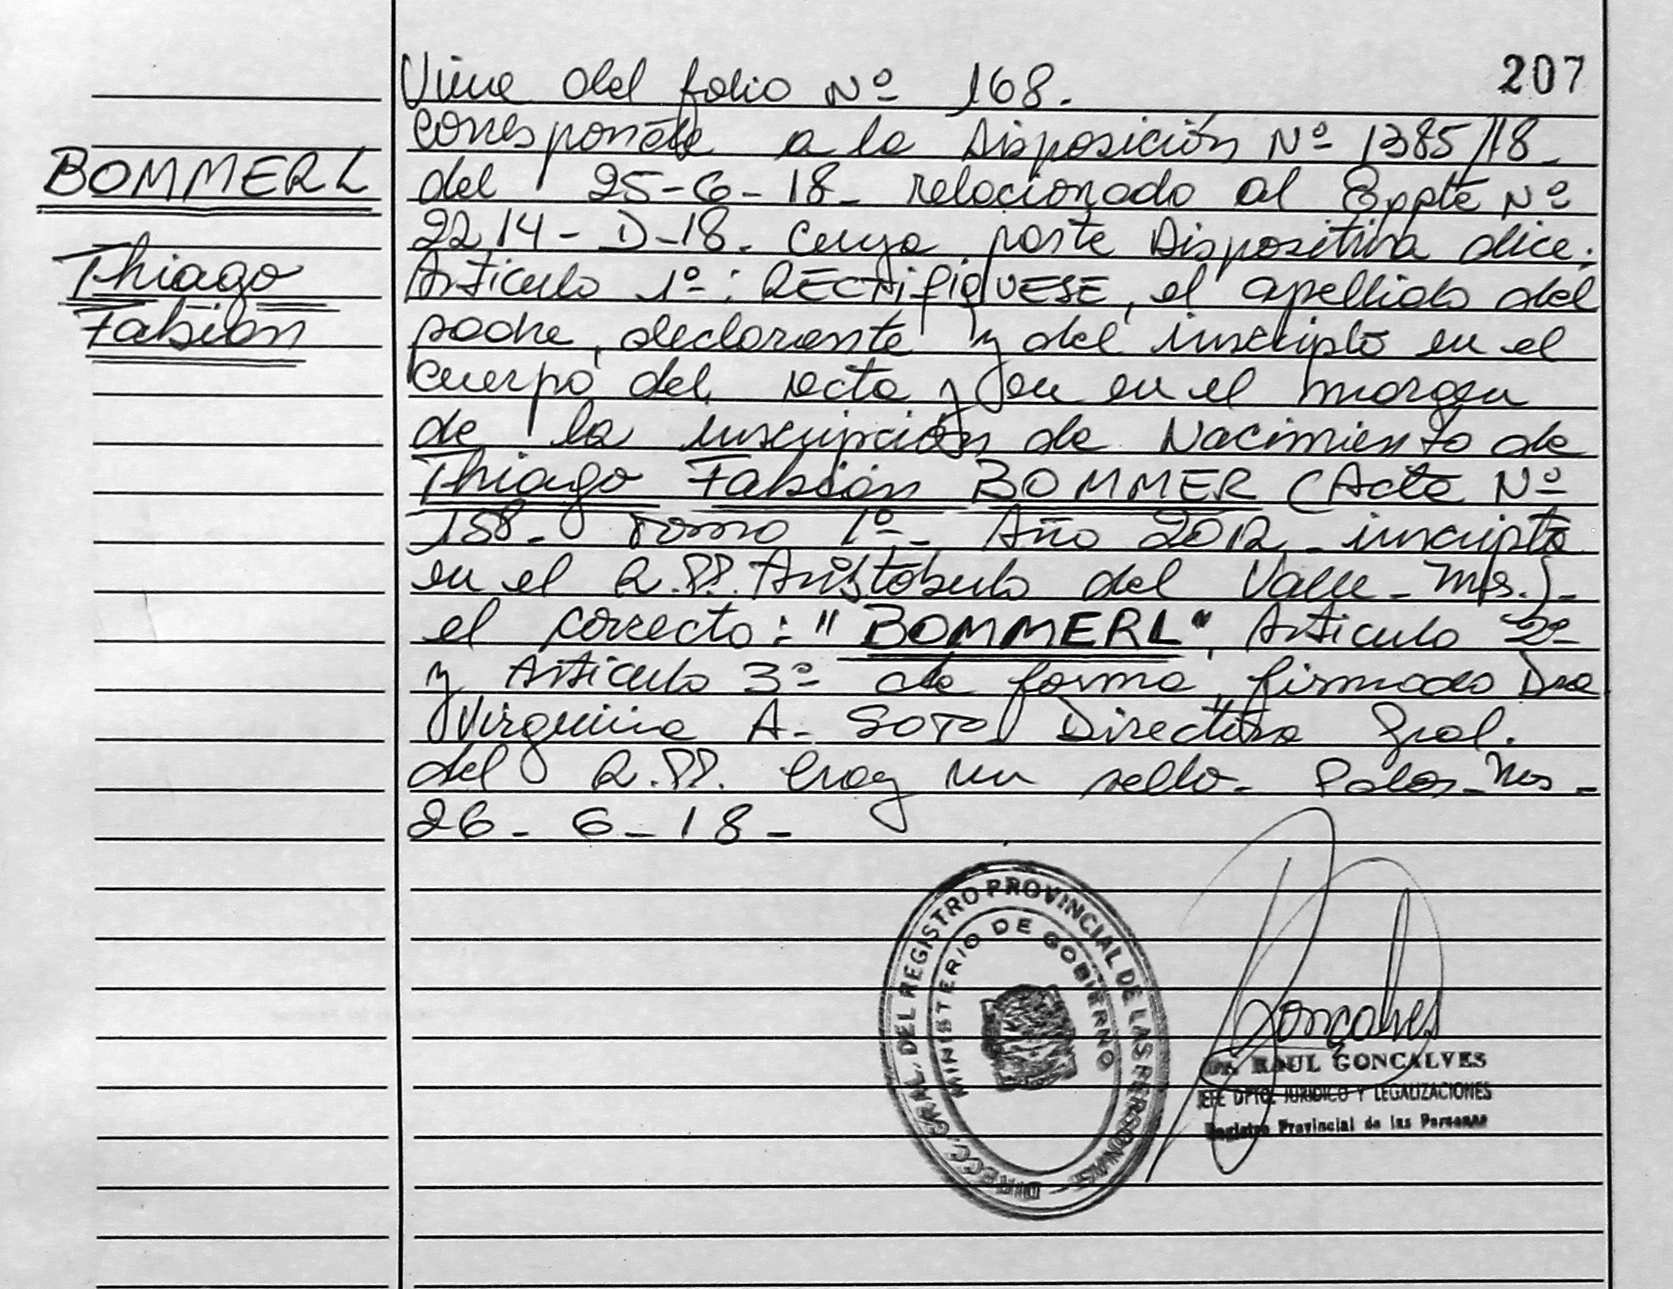 207
Viene del folio Nº 168.
corresponde a la Disposición Nº 1385/18-
BOMMERL
del 25-6-18- relacionado al Exppte Nº
2214-D-18- cuya parte Dispositiva dice:
Thiago
Artículo 1º: RECTIFIQUESE, el apellido del
Fabián
padre, declarante y del inscripto en el
cuerpo del acta y en en el margen
de la inscripción de Nacimiento de
Thiago Fabián BOMMER (Acta Nº
158- Tomo 1º- Año 2012 - inscripto
en el R.PP. Aristóbulo del Valle - Mns.)-
el correcto: "BOMMERL". Artículo 2º
y Artículo 3º de forma, firmado Dra
Virginia A. SOTO Directora Gral.
del R.PP. hay un sello. Pdas-Mns-
26-6-18-
DIRECC. GRAL. DEL REGISTRO PROVINCIAL DE LAS PERSONAS
MINISTERIO DE GOBIERNO
Goncalves
Dr. RAUL GONCALVES
JEFE DPTO. JURIDICO Y LEGALIZACIONES
Registro Provincial de las Personas